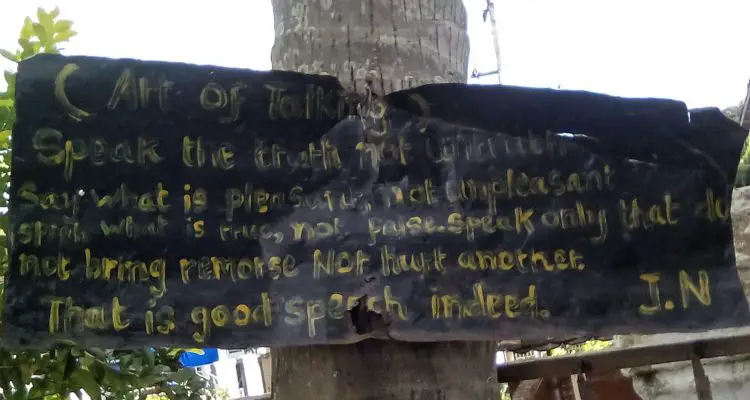 ( Art of Talking )
Speak the truth not untruth
Say what is pleasant, not unpleasant
speak what is true, not false. speak only that do
not bring remorse Nor hurt another.
That is good speech indeed. J.N